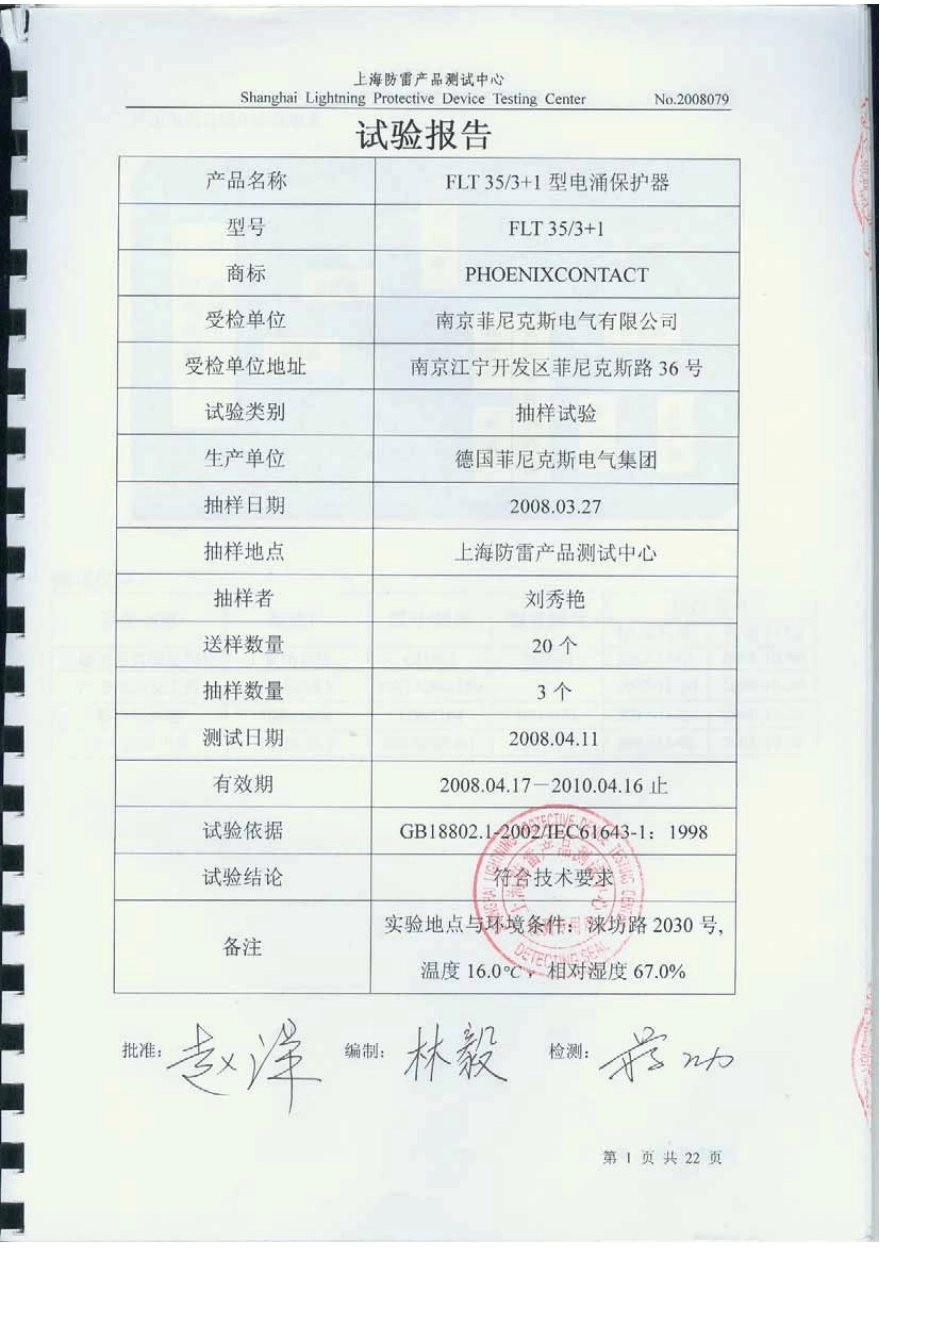 上海防雷产品测试中心
Shanghai Lightning Protective Device Testing Center No.2008079
试验报告
产品名称 FLT 35/3+1 型电涌保护器
型号 FLT 35/3+1
商标 PHOENIXCONTACT
受检单位 南京菲尼克斯电气有限公司
受检单位地址 南京江宁开发区菲尼克斯路 36 号
试验类别 抽样试验
生产单位 德国菲尼克斯电气集团
抽样日期 2008.03.27
抽样地点 上海防雷产品测试中心
抽样者 刘秀艳
送样数量 20 个
抽样数量 3 个
测试日期 2008.04.11
有效期 2008.04.17－2010.04.16 止
试验依据 GB18802.1-2002/IEC61643-1：1998
试验结论 符合技术要求
备注 实验地点与环境条件：涞坊路 2030 号,
温度 16.0℃，相对湿度 67.0%
SHANGHAI LIGHTNING PROTECTIVE DEVICE TESTING CENTER
上海防雷产品测试中心
DETECTING SEAL
批准: 赵洋 编制: 林毅 检测:
第 1 页 共 22 页